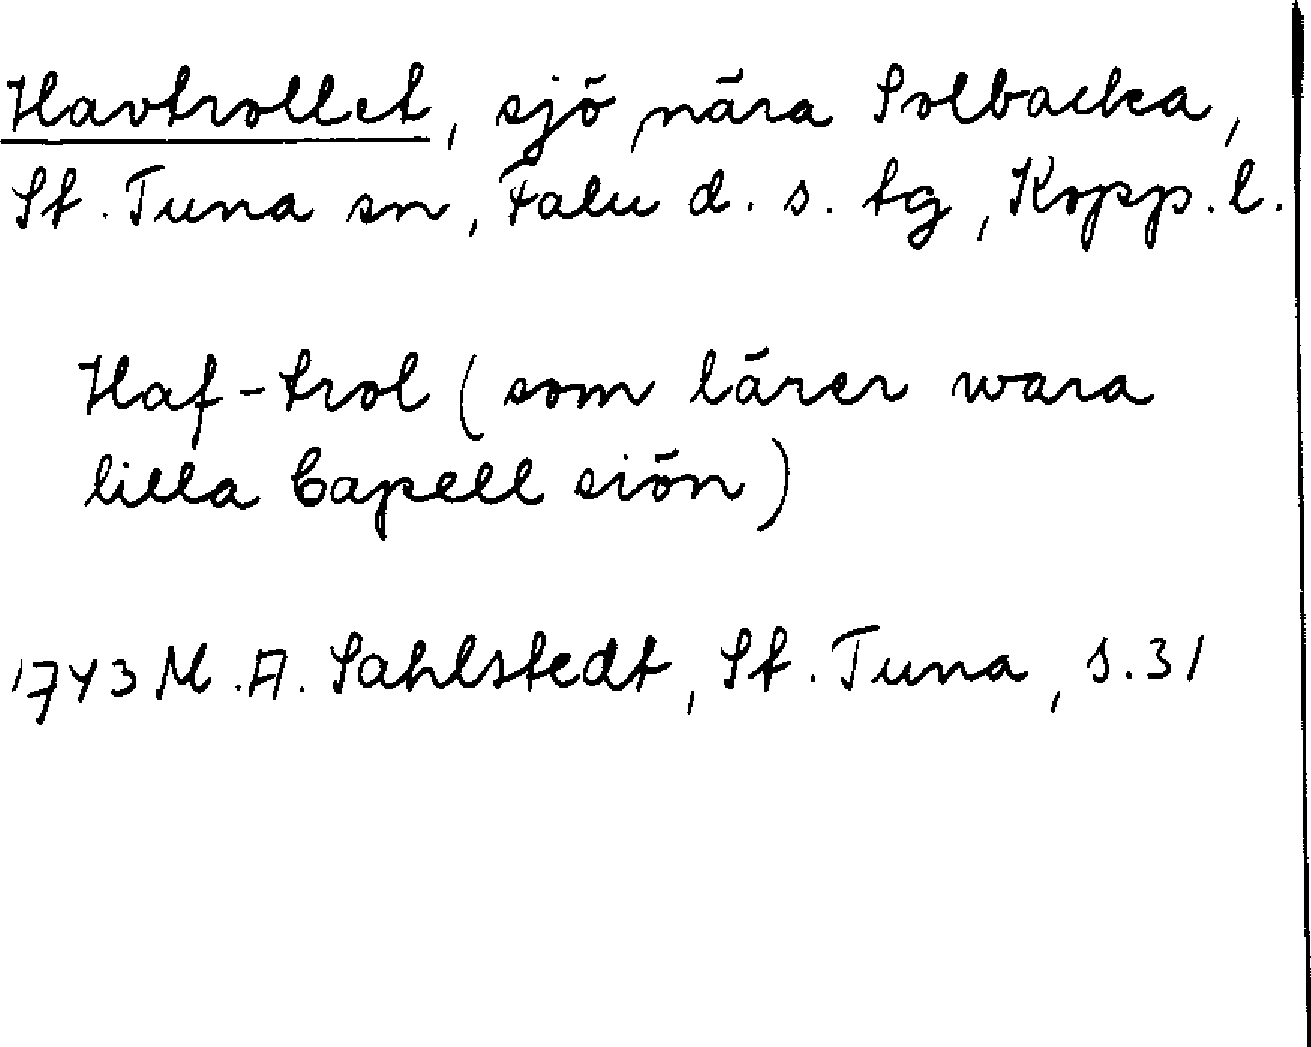 Havtrollet, sjö nära Solbacka,
St. Tuna sn, Falu d. s. tg, Kopp. l.
Haf-trol (som lärer wara
lilla Capell siön)
1743 M. A. Sahlstedt, St. Tuna, s. 31